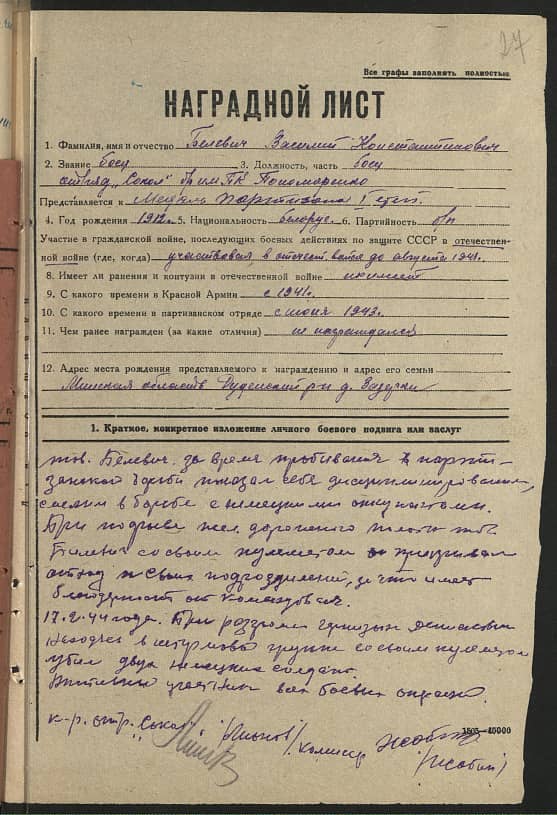 27
Все графы заполнять полностью
НАГРАДНОЙ ЛИСТ
1. Фамилия, имя и отчество Белевич Василий Константинович
2. Звание боец 3. Должность, часть боец
отряд „Сокол" бр им ПК Пономаренко
Представляется к Медаль Партизана I степ.
4. Год рождения 1912 5. Национальность белорус 6. Партийность б/п
Участие в гражданской войне, последующих боевых действиях по защите СССР в отечествен-
ной войне (где, когда) участвовал в отечест. войне до августа 1941.
8. Имеет ли ранения и контузии в отечественной войне не имеет
9. С какого времени в Красной Армии с 1941г.
10. С какого времени в партизанском отряде с июня 1943.
11. Чем ранее награжден (за какие отличия) не награждался
12. Адрес места рождения представляемого к награждению и адрес его семьи
Минская область Руденский р-н д.
1. Краткое, конкретное изложение личного боевого подвига или заслуг
тов. Белевич за время пребывания в парти-
занской борьбе показал себя дисциплинированным,
смелым в борьбе с немецкими оккупантами.
При подрыве жел. дорожного полотна тов.
Белевич со своим пулеметом прикрывал
отход своих подразделений, за что имеет
благодарность от командования.
17.2.44 года. При разгроме гарнизона
находясь в штурмовой группе со своим пулеметом
убил двух немецких солдат.
Активный участник всех боевых операций.
к-р. отр. „Сокол" комиссар Жобин
1505—15000